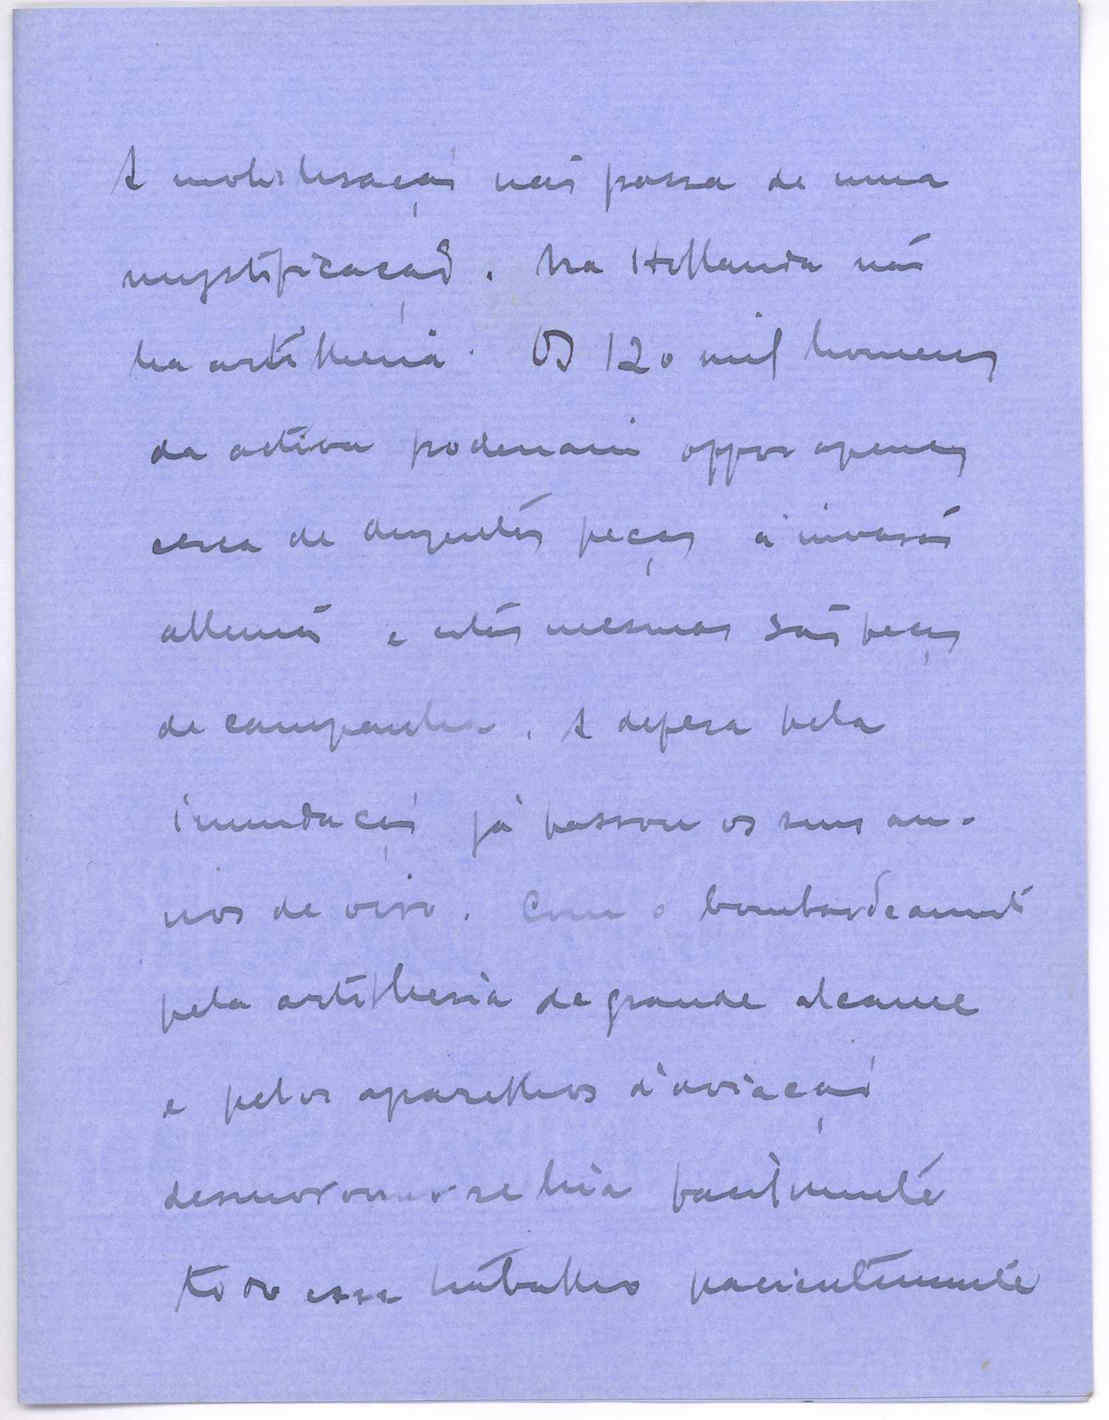 A mobilisação não passa de uma
mystificação. Na Hollanda não
ha artilheria. Os 120 mil homens
da activa poderiam oppor apenas
cerca de duzentas peças á invasão
allemã e estas mesmas são peças
de campanha. A defesa pela
inundação já passou os seus an-
nos de viço. Com o bombardeamento
pela artilheria de grande alcance
e pelos aparelhos d'aviação
desmoronar-se hia facilmente
todo esse trabalho pacientemente